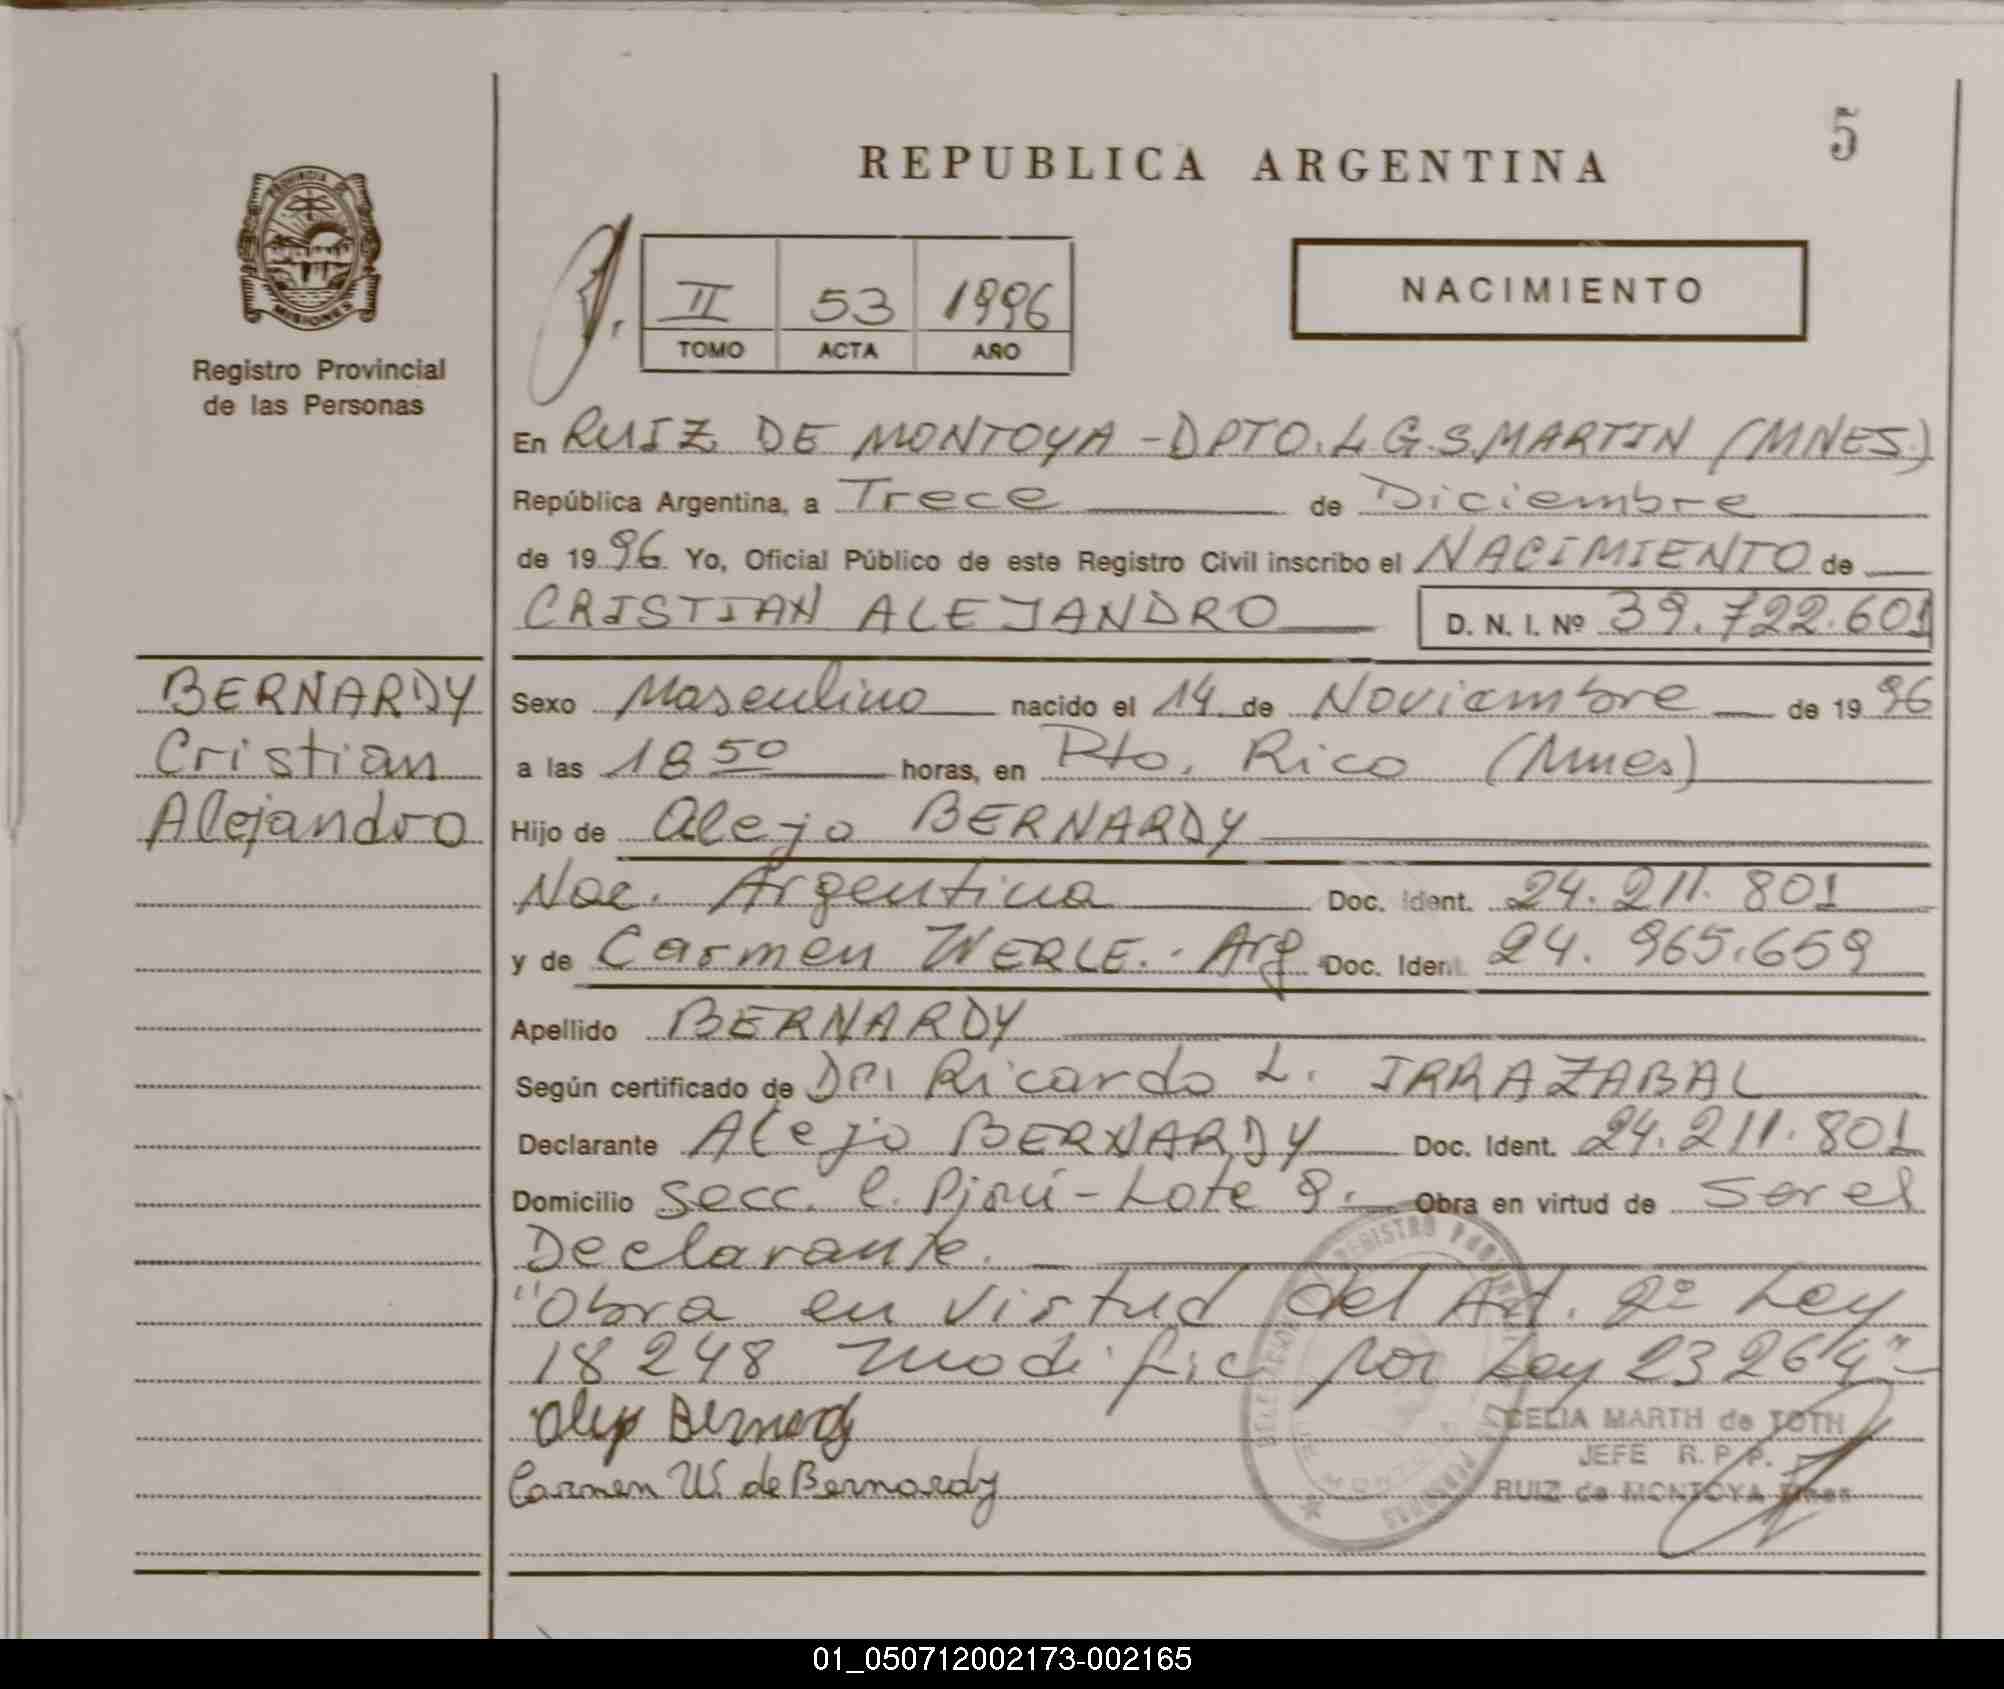 5
REPUBLICA ARGENTINA
PROVINCIA DE
MISIONES
Registro Provincial
de las Personas
II 53 1996
TOMO ACTA AÑO
NACIMIENTO
En RUIZ DE MONTOYA - DPTO. L G. S. MARTIN (MNES.)
República Argentina, a Trece de Diciembre
de 1996. Yo, Oficial Público de este Registro Civil inscribo el NACIMIENTO de
CRISTIAN ALEJANDRO D. N. I. Nº 39.722.601
BERNARDY
Cristian
Alejandro
Sexo Masculino nacido el 14 de Noviembre de 1996
a las 18 50 horas, en Pto. Rico (Mnes)
Hijo de Alejo BERNARDY
Nac. Argentina Doc. Ident. 24.211.801
y de Carmen WERLE. - Arg Doc. Ident. 24.965.659
Apellido BERNARDY
Según certificado de Dr. Ricardo L. IRRAZABAL
Declarante Alejo BERNARDY Doc. Ident. 24.211.801
Domicilio Secc. C. Pirú - Lote 9. Obra en virtud de ser el
Declarante.
"Obra en virtud del Art. 2º Ley
18248 modific por Ley 23264"
Alejo Bernardy
Carmen W. de Bernardy
CELIA MARTH de TOTH
JEFE R. P. P.
RUIZ de MONTOYA Mnes
01_050712002173-002165